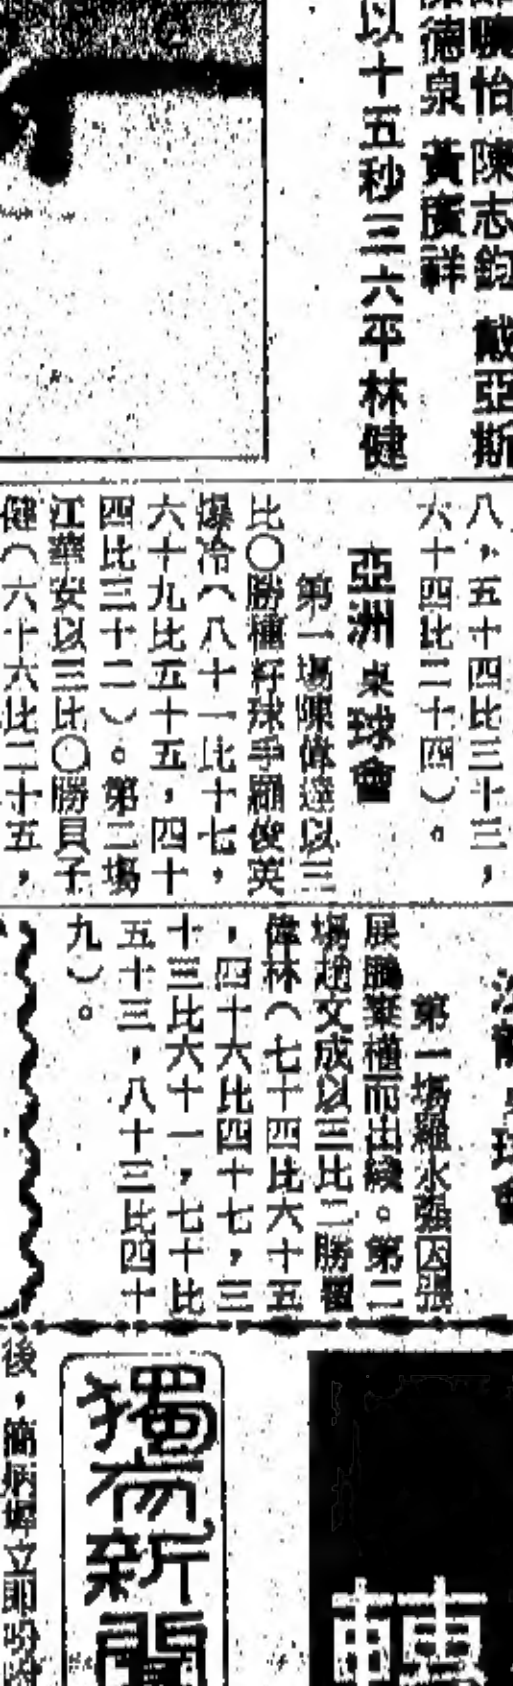 陳志鈞 戴亞斯
德泉 黃廣祥
以十五秒三六平林健
八，五十四比三十三，
六十四比二十四）。
亞洲桌球會
第一場陳偉達以三
比〇勝種籽球手羅俊英
爆冷（八十一比十七，
六十九比五十五，四十
四比三十二）。第二場
江華安以三比〇勝貝子
健（六十六比二十五，
球會
第一場羅永強因張
展鵬棄權而出綫。第二
場趙文成以三比二勝
偉林（七十四比六十五
，四十六比四十七，三
十三比六十一，七十比
五十三，八十三比四十
九）。
轉
獨家新聞
後，立即